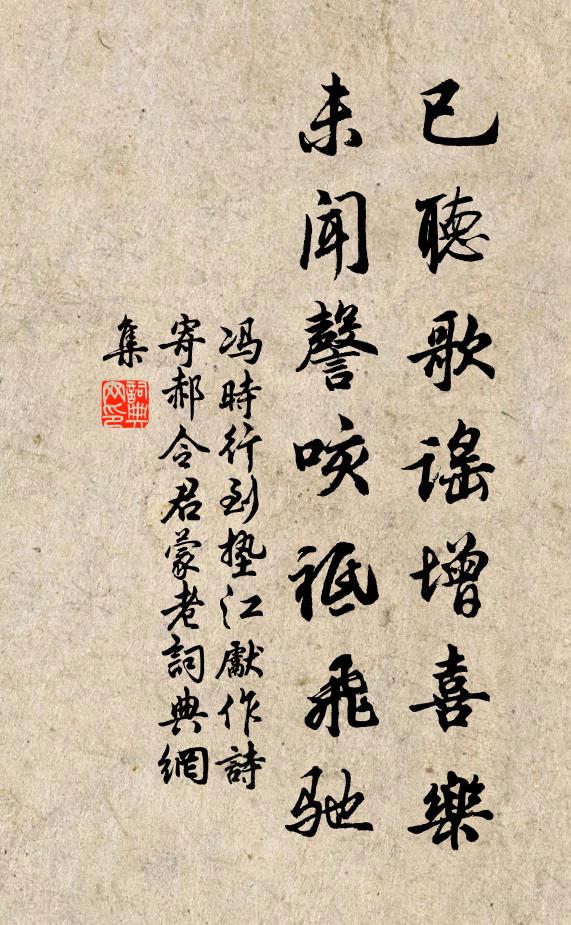 已聽歌謠增喜樂
未聞謦咳祗飛馳
冯時行到墊江獻作詩
寄郝令君蒙老詞典網
集
詞典网印